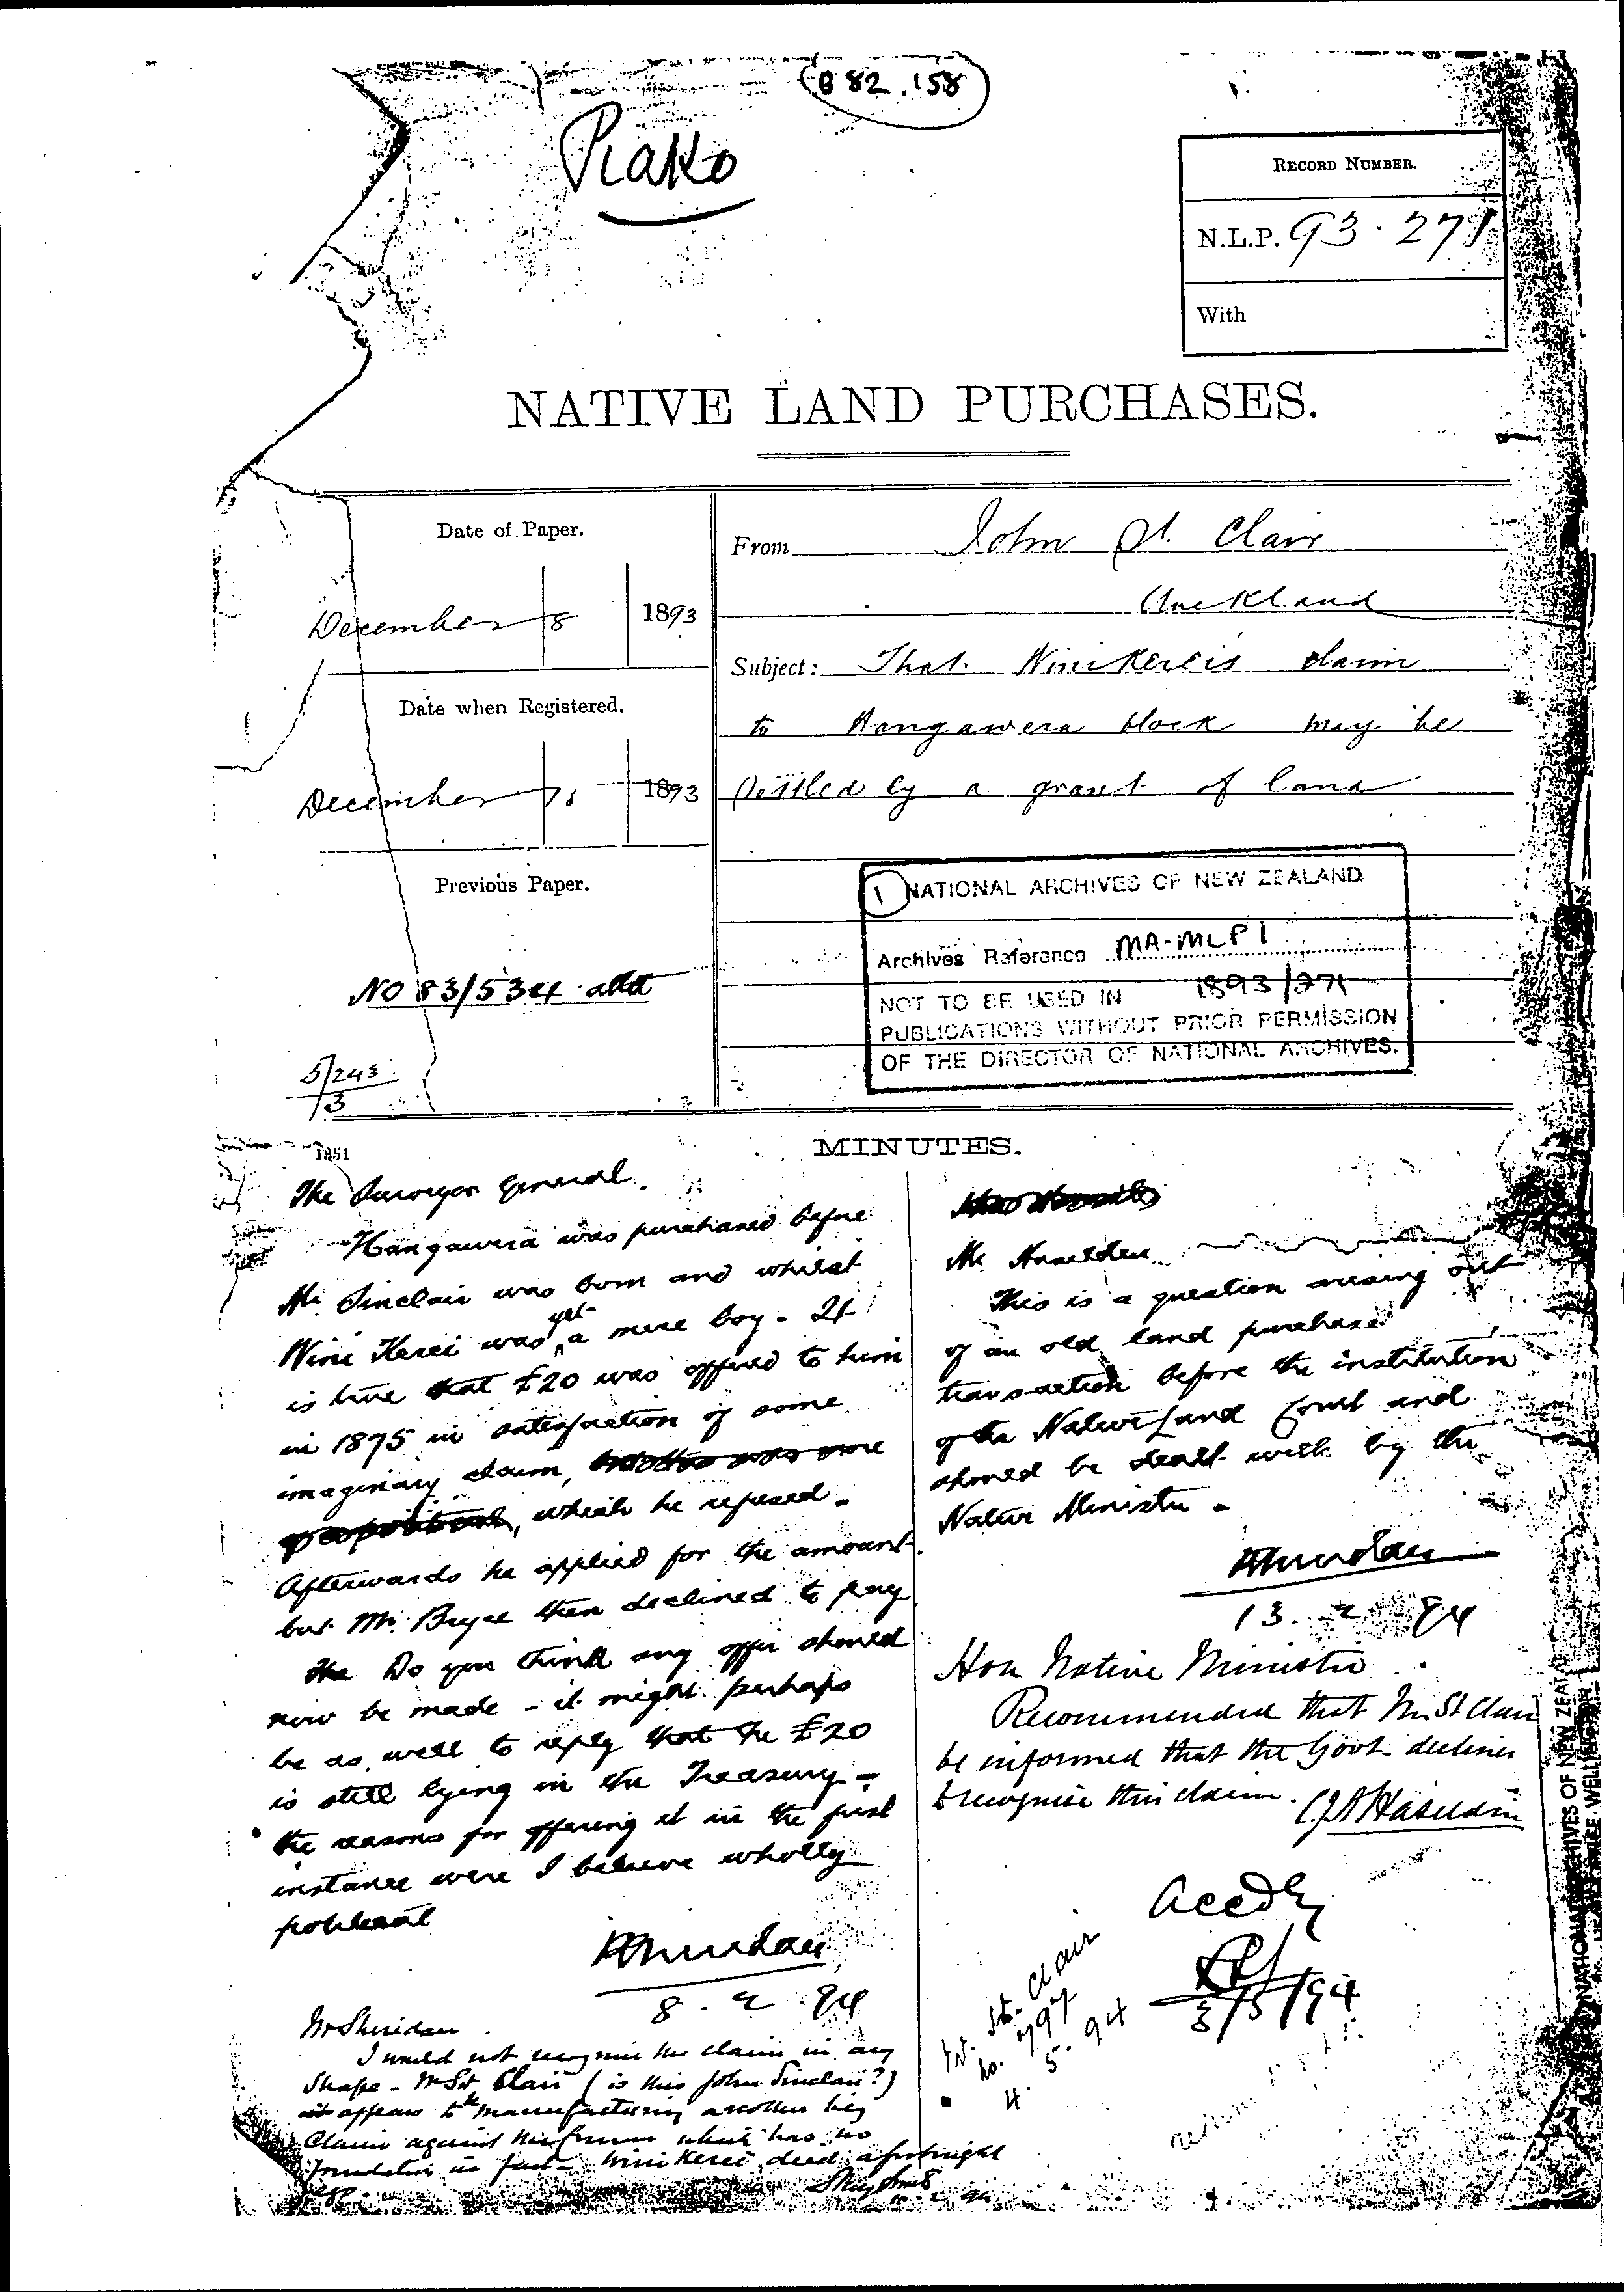 B 82.158
Piako
RECORD NUMBER.
N.L.P. 93.271
With
NATIVE LAND PURCHASES.
Date of Paper.
December 8 1893
Date when Registered.
December 1893
Previous Paper.
NO 83/534 attd
5/243
13
From John St. Clair
Auckland
Subject: That Wini Kerei's claim
to Hangawera block may be
settled by a grant of land
1 NATIONAL ARCHIVES OF NEW ZEALAND
Archives Reference MA-MLP 1
1893/271
NOT TO BE USED IN
PUBLICATIONS WITHOUT PRIOR PERMISSION
OF THE DIRECTOR OF NATIONAL ARCHIVES.
1851
MINUTES.
The Surveyor General.
Hangawera was purchased before
Mr Sinclair was born and whilst
Wini Kerei was yet a mere boy - It
is true that £20 was offered to him
in 1875 in satisfaction of some
imaginary claim,
, which he refused.
Afterwards he applied for the amount
but Mr. Bryce then declined to pay
the Do you think any offer should
now be made - it might perhaps
be as well to reply that the £20
is still lying in the Treasury -
the reasons for offering it in the first
instance were I believe wholly
political
PSheridan
8.2.94
Mr Sheridan
I would not recognise the claim in any
shape - Mr St Clair (is this John Sinclair?)
appears to be manufacturing another big
claim against the which has no
foundation in fact - Wini Kerei died a fortnight
ago.
Mr. Haselden
This is a question arising out
of an old land purchase
transaction before the institution
of the Native Land Court and
should be dealt with by the
Native Minister -
PSheridan
13. 2 94
Hon Native Minister
Recommended that Mr St Clair
be informed that the Govt declines
to recognise this claim. CJAHaselden
Accdly
3/5/94
St. Clair
No. 797
4. 5. 94
NATIONAL ARCHIVES OF NEW ZEALAND
HEAD OFFICE WELLINGTON